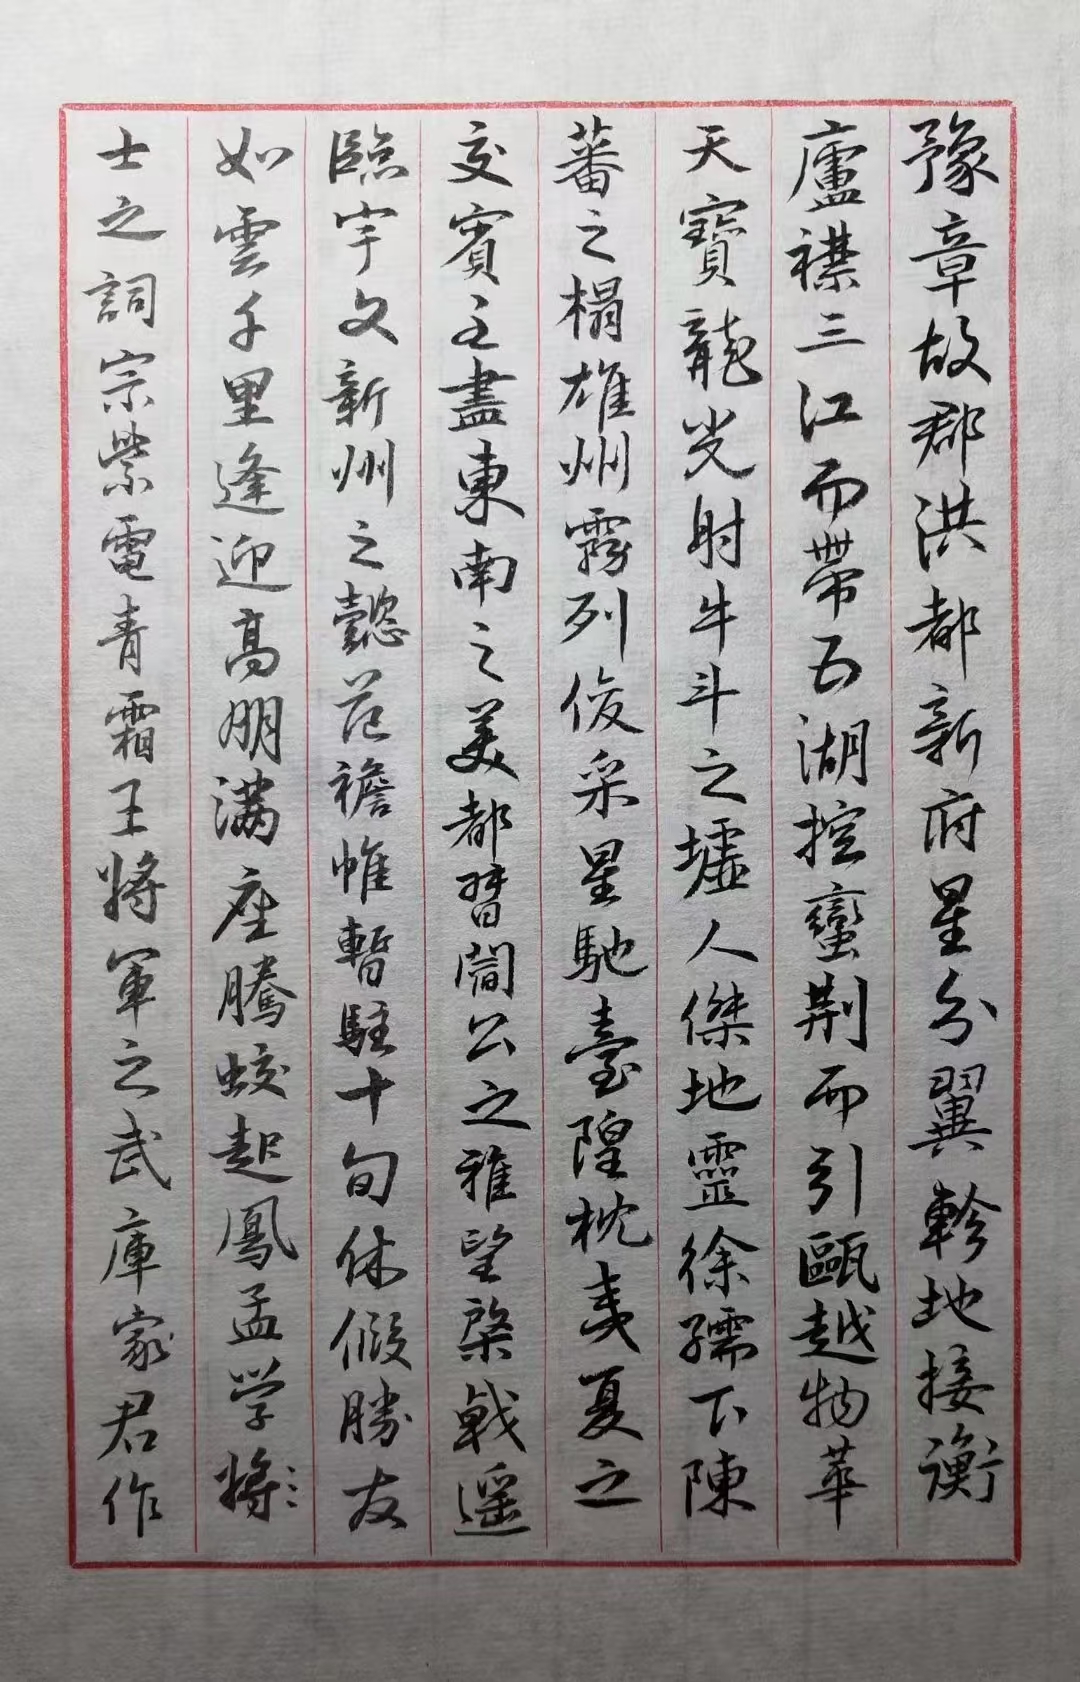 豫章故郡洪都新府星分翼軫地接衡
廬襟三江而帶五湖控蠻荊而引甌越物華
天寶龍光射牛斗之墟人傑地靈徐孺下陳
蕃之榻雄州霧列俊采星馳臺隍枕夷夏之
交賓主盡東南之美都督閻公之雅望棨戟遥
臨宇文新州之懿范襜帷暫駐十旬休假勝友
如雲千里逢迎高朋满座騰蛟起鳳孟学將
士之詞宗紫電青霜王將軍之武庫家君作